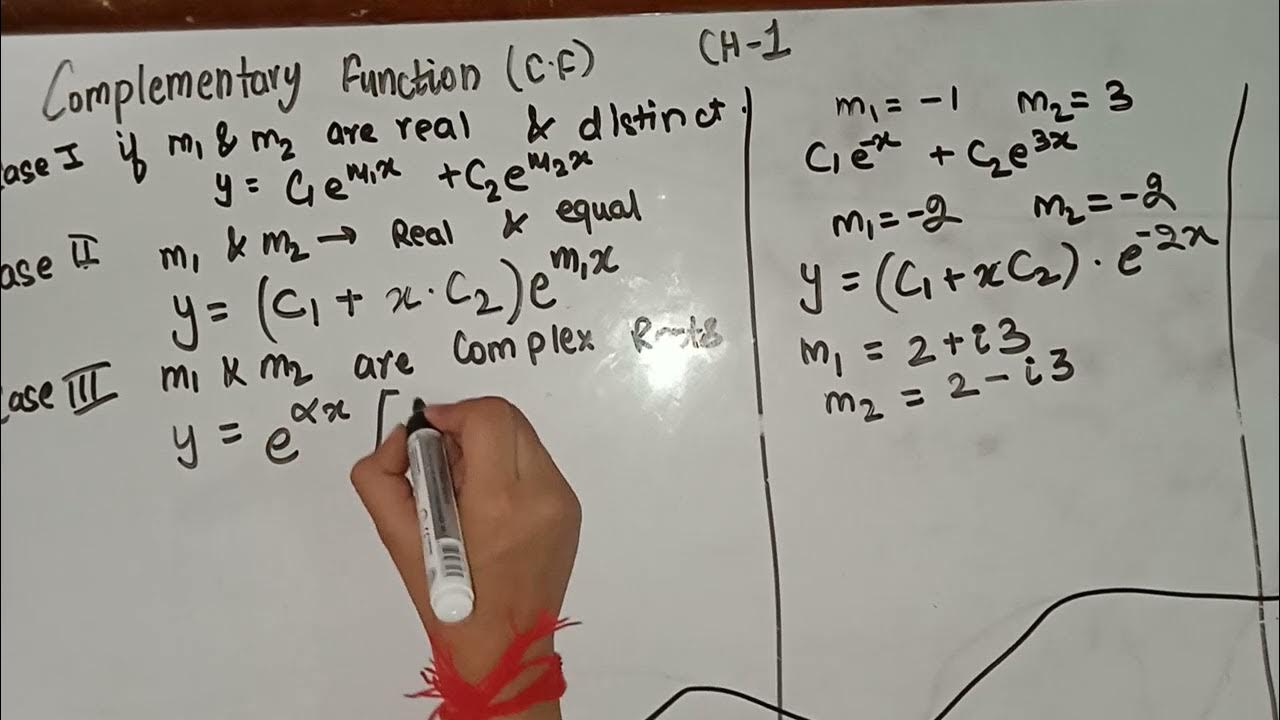 Complementary Function (C.F)
CH-1
ase I if m₁ & m₂ are real & distinct.
y = C₁e^m₁x + C₂e^m₂x
ase II m₁ & m₂ → Real & equal
y = (C₁ + x·C₂)e^m₁x
Case III m₁ & m₂ are Complex Roots
y = e^αx [
m₁ = -1 m₂ = 3
C₁e^-x + C₂e^3x
m₁ = -2 m₂ = -2
y = (C₁ + xC₂)·e^-2x
m₁ = 2 + i3
m₂ = 2 - i3